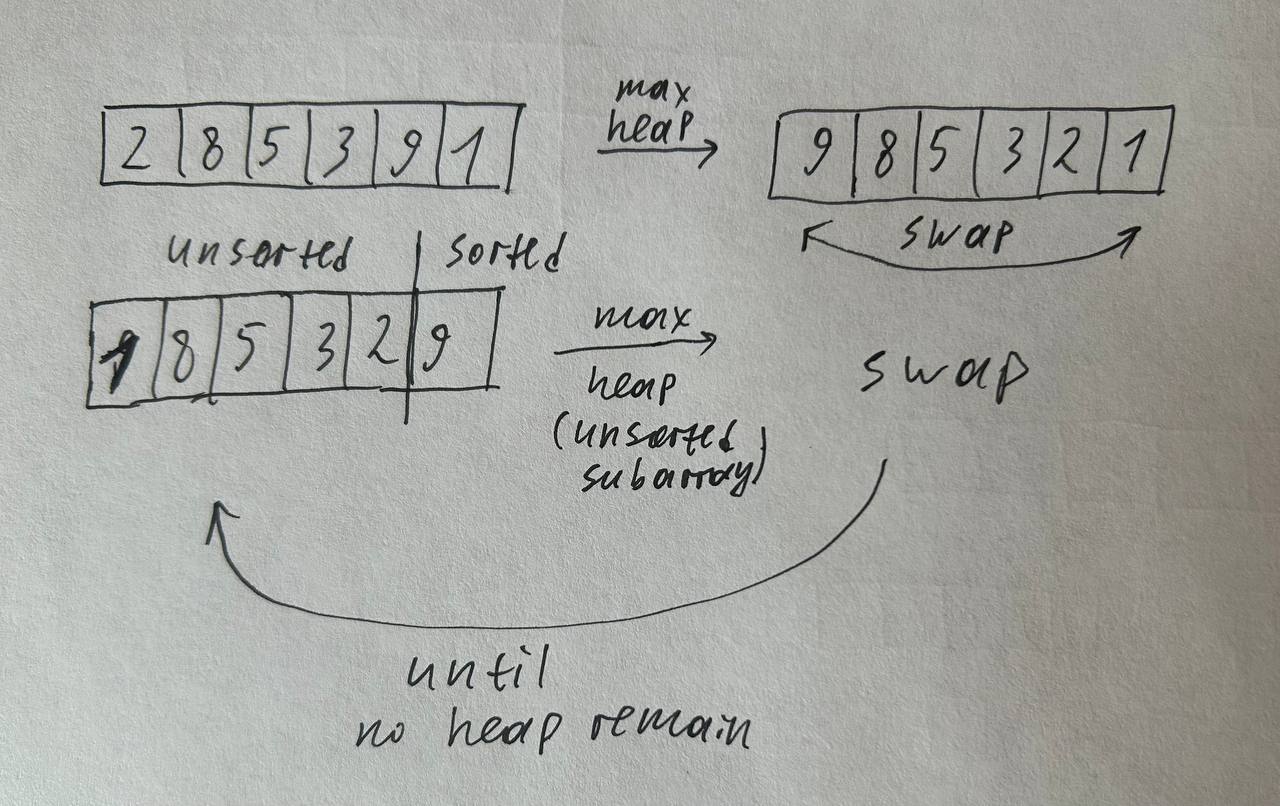 2 8 5 3 9 1
max
heap
9 8 5 3 2 1
swap
unsorted sorted
1 8 5 3 2 9
max
heap
(unsorted
subarray)
swap
until
no heap remain